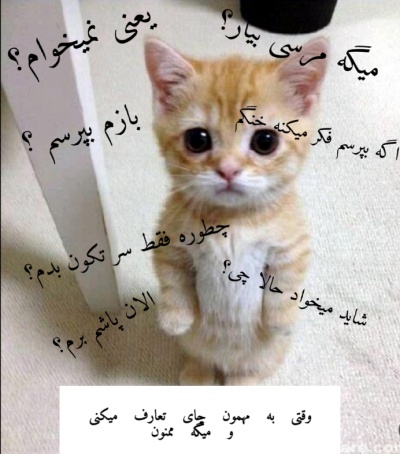 یعنی نمیخوام؟
میگه مرسی بیار؟
بازم بپرسم ؟
اگه بپرسم فکر میکنه خنگم
چطوره فقط سر تکون بدم؟
شاید میخواد حالا چی؟
الان پاشم برم؟
وقتی به مهمون چای تعارف میکنی
و میگه ممنون